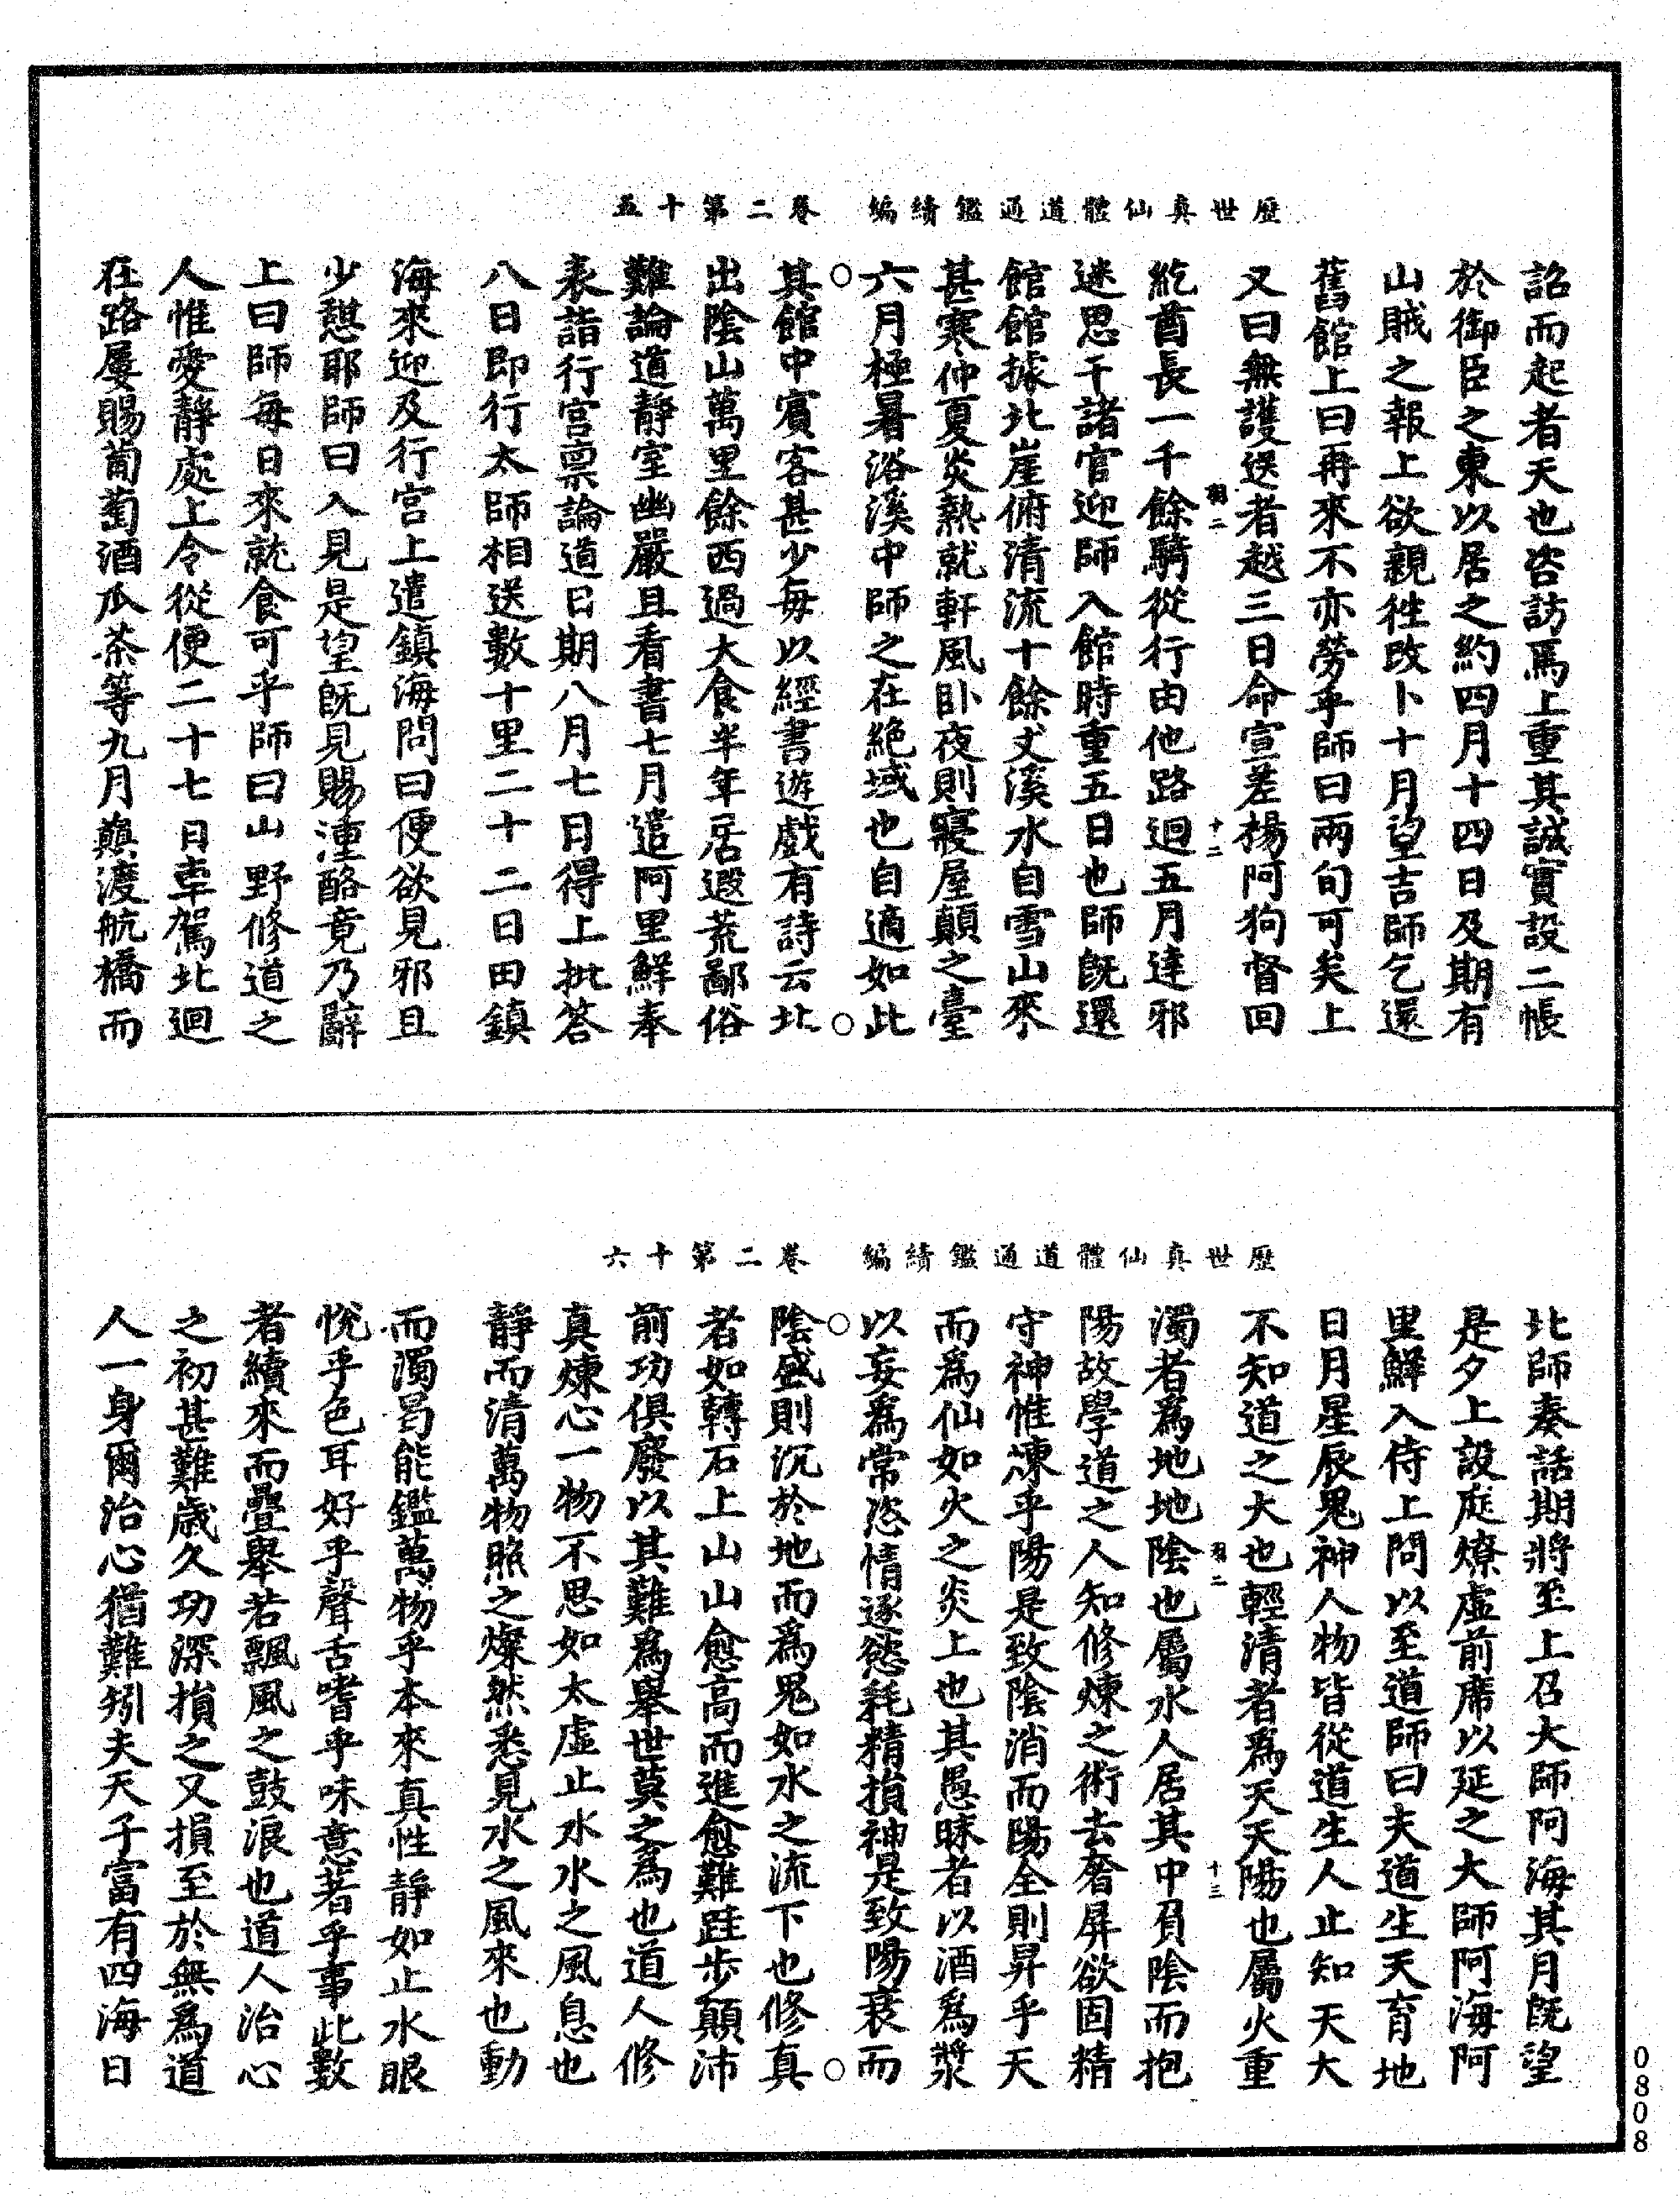 歷世真仙體道通鑑續編　卷二第十五
詔而起者天也咨訪焉上重其誠實設二帳
於御臣之東以居之約四月十四日及期有
山賊之報上欲親往改卜十月望吉師乞還
舊館上曰再來不亦勞乎師曰兩旬可矣上
又曰無護送者越三日命宣差楊阿狗督回
羽二　十二
紇酋長一千餘騎從行由他路迴五月達邪
迷思干諸官迎師入館時重五日也師旣還
館館據北崖俯清流十餘丈溪水自雪山來
甚寒仲夏炎熱就軒風卧夜則寢屋顛之臺
六月極暑浴溪中師之在絕域也自適如此
○　○
其館中賓客甚少每以經書遊戲有詩云北
出陰山萬里餘西過大食半年居遐荒鄙俗
難論道靜室幽嚴且看書七月遣阿里鮮奉
表詣行宮禀論道日期八月七日得上批答
八日即行太師相送數十里二十二日田鎮
海來迎及行宮上遣鎮海問曰便欲見邪且
少憩耶師曰入見是望旣見賜湩酪竟乃辭
上曰師每日來就食可乎師曰山野修道之
人惟愛靜處上令從便二十七日車駕北迴
在路屢賜蒲萄酒瓜茶等九月巔渡航橋而
歷世真仙體道通鑑續編　卷二第十六
北師奏話期將至上召大師阿海其月旣望
是夕上設庭燎虛前席以延之大師阿海阿
里鮮入侍上問以至道師曰夫道生天育地
日月星辰鬼神人物皆從道生人止知天大
不知道之大也輕清者爲天天陽也屬火重
羽二　十三
濁者爲地地陰也屬水人居其中負陰而抱
陽故學道之人知修煉之術去奢屏欲固精
守神惟凍乎陽是致陰消而陽全則昇乎天
而爲仙如火之炎上也其愚昧者以酒爲漿
以妄爲常恣情逐慾耗精損神是致陽衰而
○　○
陰盛則沉於地而爲鬼如水之流下也修真
者如轉石上山山愈高而進愈難跬步顛沛
前功俱廢以其難爲舉世莫之爲也道人修
真煉心一物不思如太虛止水水之風息也
靜而清萬物照之燦然悉見水之風來也動
而濁曷能鑑萬物乎本來真性靜如止水眼
悅乎色耳好乎聲舌嗜乎味意著乎事此數
者續來而疊舉若飄風之鼓浪也道人治心
之初甚難歲久功深損之又損至於無爲道
人一身爾治心猶難矧夫天子富有四海日
0808